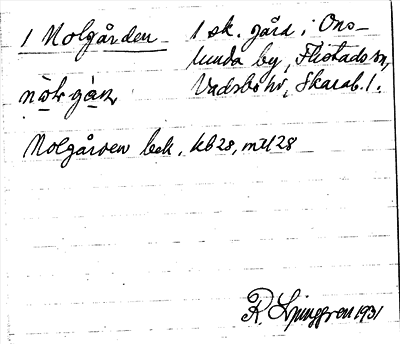 1 Nolgården 1 sk. gård i Ons-
lunda by, Flistads sn,
Vadsbo hd, Skarab. l.
nòlr gàn,
Nolgården bek. kb 28, mtl 28
R. Ljunggren 1931